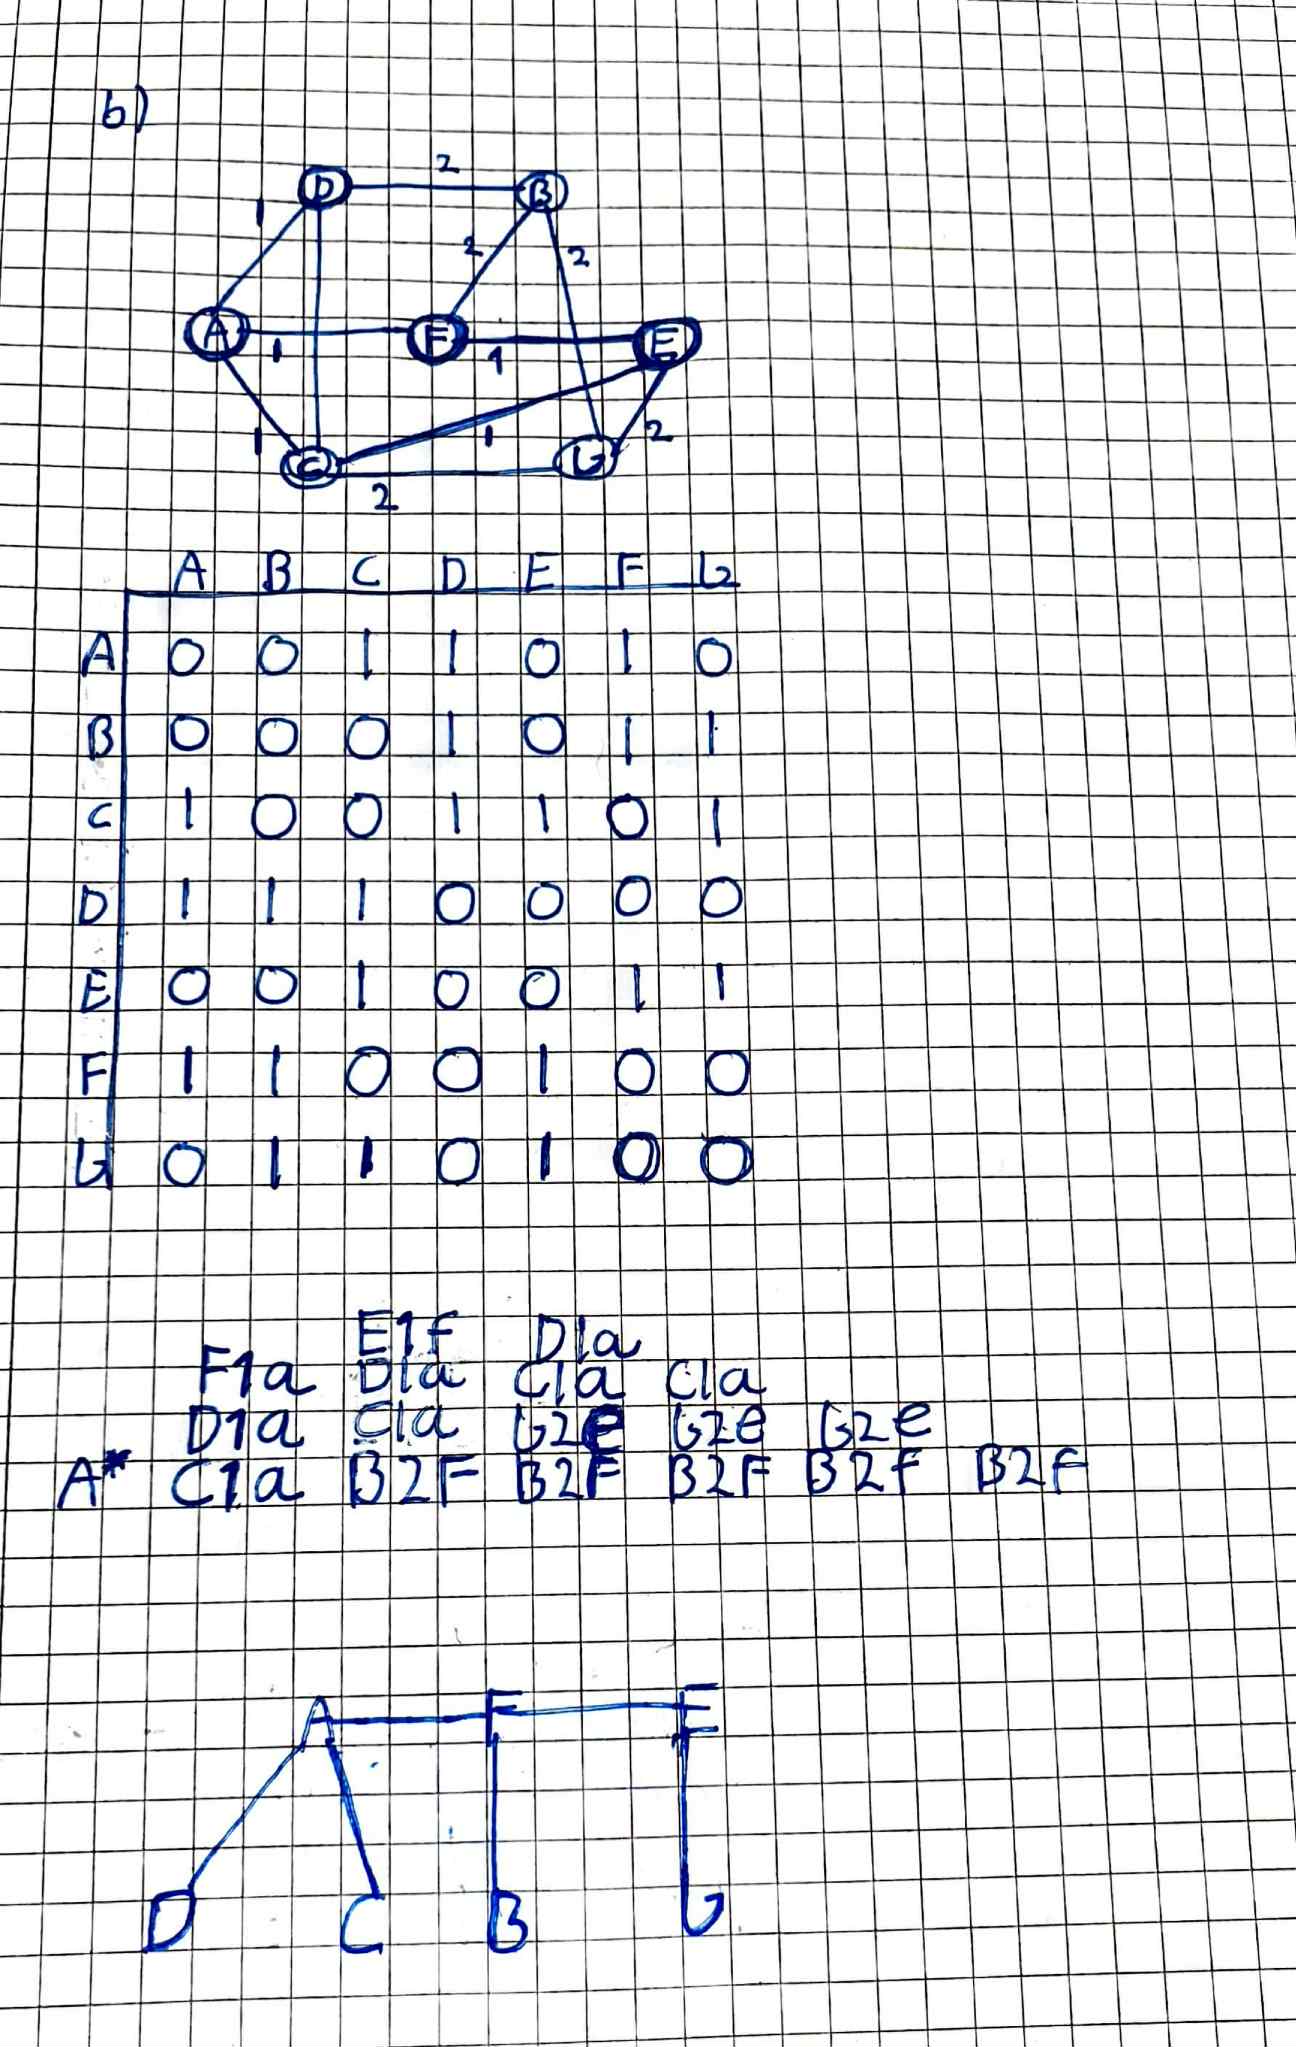 b)
2
D B
1 2 2
A F E
1 1
1 1 2
C G
2
A B C D E F G
A 0 0 1 1 0 1 0
B 0 0 0 1 0 1 1
C 1 0 0 1 1 0 1
D 1 1 1 0 0 0 0
E 0 0 1 0 0 1 1
F 1 1 0 0 1 0 0
G 0 1 1 0 1 0 0
E1f D1a
F1a D1a C1a C1a
D1a C1a G2e G2e G2e
A* C1a B2F B2F B2F B2f B2f
A F E
D C B G